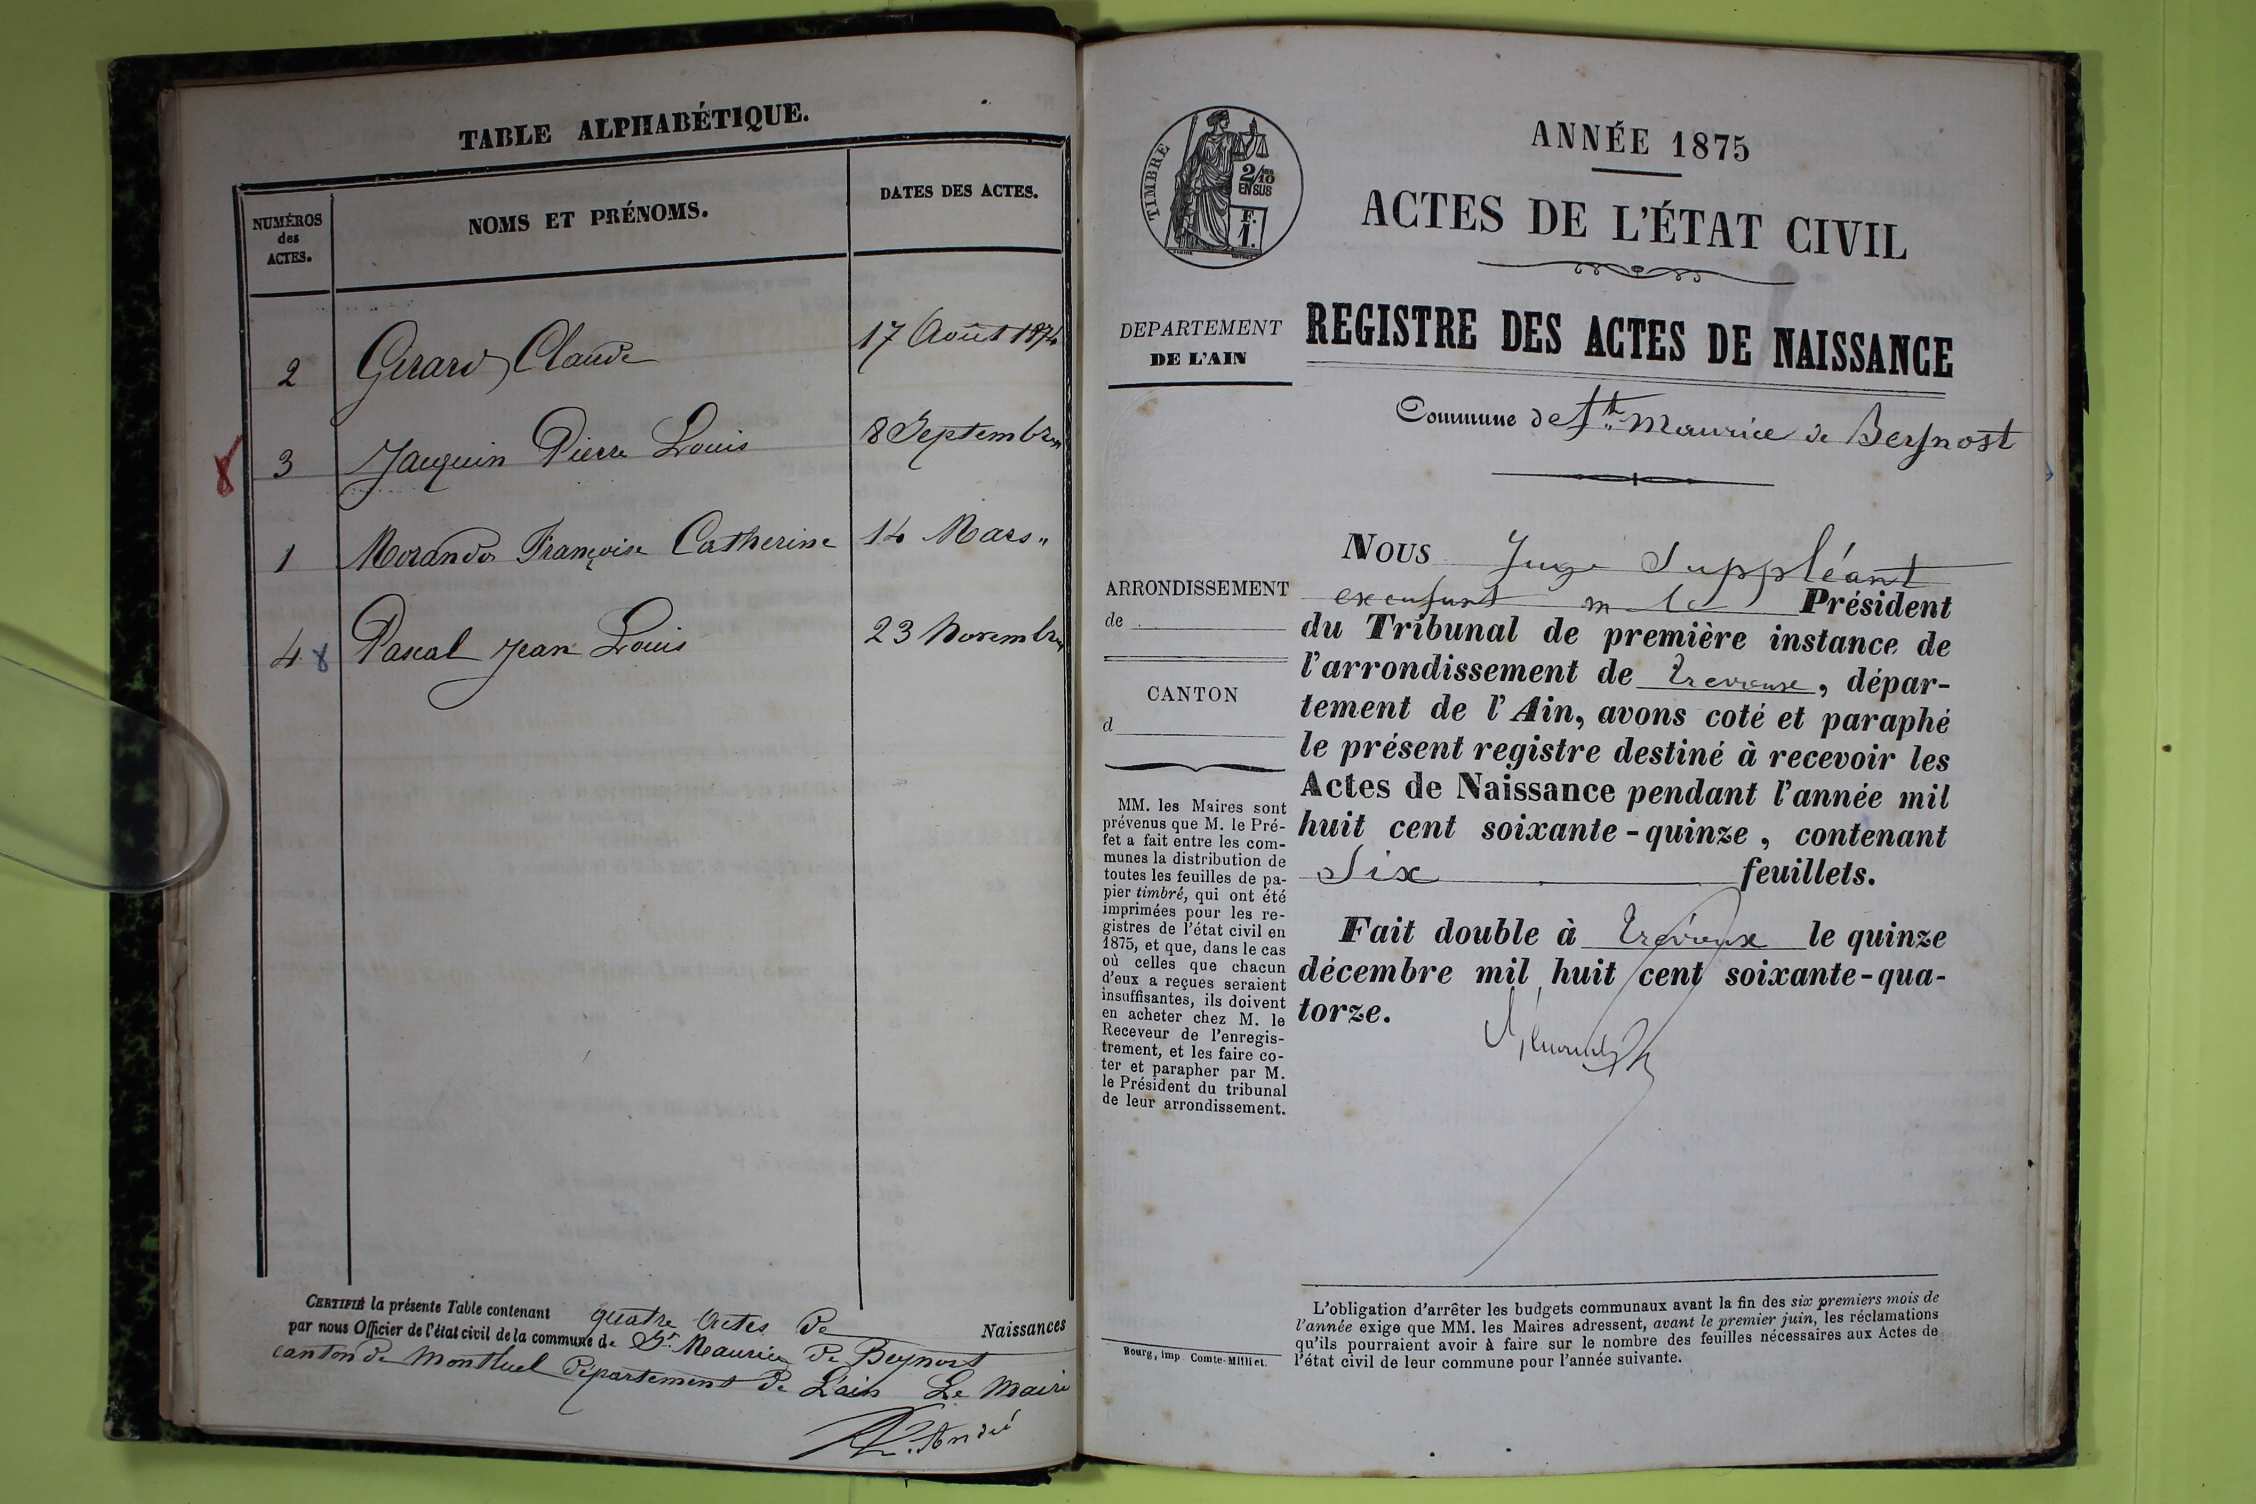 TABLE ALPHABÉTIQUE.
NUMÉROS
des
ACTES.
NOMS ET PRÉNOMS.
DATES DES ACTES.
2 Girard Claude 17 Août 1874
3 Jacquin Pierre Louis 8 Septembre
1 Morandos Françoise Catherine 14 Mars "
4 Pascal Jean Louis 23 Novembre
CERTIFIÉ la présente Table contenant quatre Actes de Naissances
par nous Officier de l'état civil de la commune de St Maurice de Beynost
canton de Montluel Département de L'ain Le Maire
André
TIMBRE
2/10
EN SUS
F.
1.
ANNÉE 1875
ACTES DE L'ÉTAT CIVIL
DEPARTEMENT
DE L'AIN
REGISTRE DES ACTES DE NAISSANCE
Commune de St. Maurice de Beynost
ARRONDISSEMENT
de
CANTON
d
MM. les Maires sont
prévenus que M. le Pré-
fet a fait entre les com-
munes la distribution de
toutes les feuilles de pa-
pier timbré, qui ont été
imprimées pour les re-
gistres de l'état civil en
1875, et que, dans le cas
où celles que chacun
d'eux a reçues seraient
insuffisantes, ils doivent
en acheter chez M. le
Receveur de l'enregis-
trement, et les faire co-
ter et parapher par M.
le Président du tribunal
de leur arrondissement.
Bourg, imp. Comte-Milliet.
NOUS Juge Suppléant
Président
du Tribunal de première instance de
l'arrondissement de Trevoux, dépar-
tement de l'Ain, avons coté et paraphé
le présent registre destiné à recevoir les
Actes de Naissance pendant l'année mil
huit cent soixante-quinze, contenant
Six feuillets.
Fait double à Trévoux le quinze
décembre mil huit cent soixante-qua-
torze.
L'obligation d'arrêter les budgets communaux avant la fin des six premiers mois de
l'année exige que MM. les Maires adressent, avant le premier juin, les réclamations
qu'ils pourraient avoir à faire sur le nombre des feuilles nécessaires aux Actes de
l'état civil de leur commune pour l'année suivante.